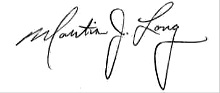 Martin J. Long